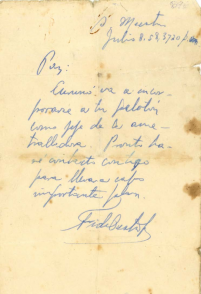 S. Maestra
Julio 8, 58, 3 y 20 p.m.
Paz:
Curuno va a incor-
porarse a tu pelotón
como jefe de la ame-
tralladora. Pronto ha-
ré contacto contigo
para llevar a cabo
importante plan.
Fidel Castro